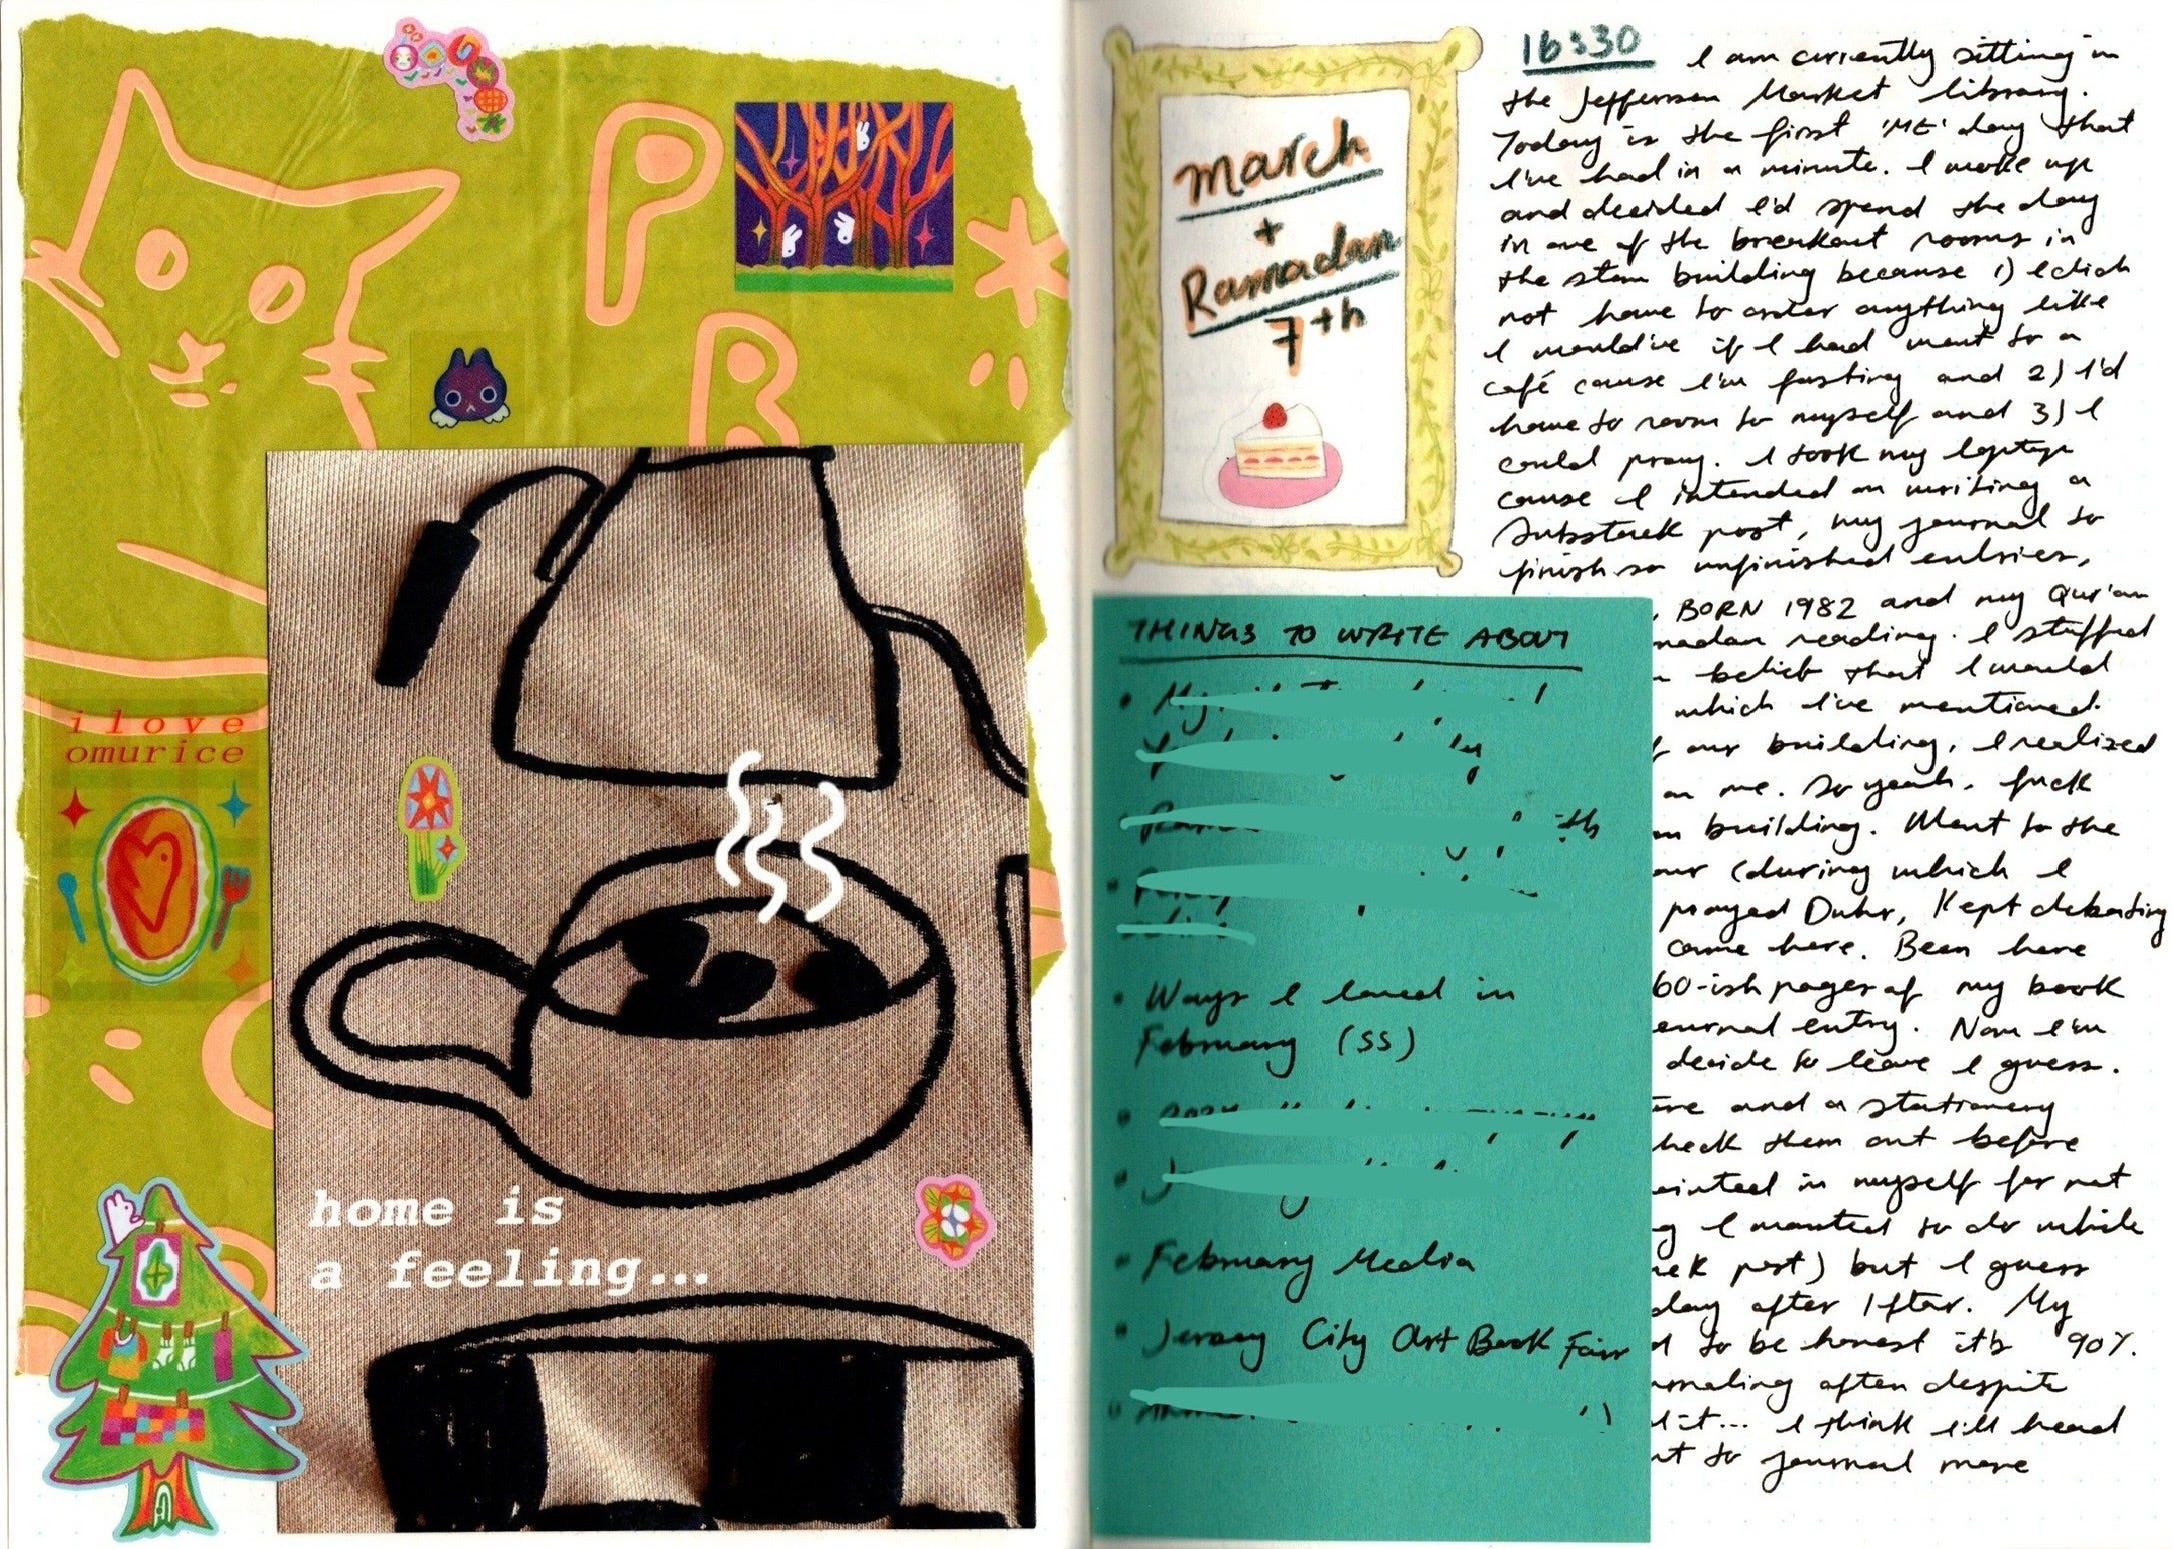 P
R
i love
omurice
home is
a feeling...
march
+
Ramadan
7th
16:30
I am currently sitting in
the Jefferson Market library.
Today is the first 'ME' day that
I've had in a minute. I woke up
and decided I'd spend the day
in one of the breakout rooms in
the stem building because 1) I didn
not have to order anything like
I would've if I had went to a
café cause I'm fasting and 2) I'd
have to room to myself and 3) I
could pray. I took my laptop
cause I intended on writing a
Substack post, my journal to
finish unfinished entries,
, BORN 1982 and my Qur'an
madan reading. I stuffed
belief that I would
which I've mentioned.
our building, I realized
on me. So yeah, fuck
building. Went to the
our (during which I
prayed Duhr, kept debating
came here. Been here
60-ish pages of my book
ournal entry. Now I'm
decide to leave I guess.
ore and a stationery
heck them out before
ointed in myself for not
g I wanted to do while
ck post) but I guess
day after Iftar. My
to be honest it's 90%.
ournaling often despite
it... I think I'll head
to journal more
THINGS TO WRITE ABOUT
• My
•
• th
•
• Ways I loved in
February (SS)
•
•
• February Media
• Jersey City Art Book Fair
•